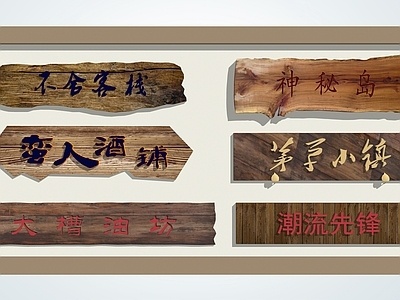 不舍客栈
神秘岛
蛮人酒铺
茅草小镇
大槽油坊
潮流先锋